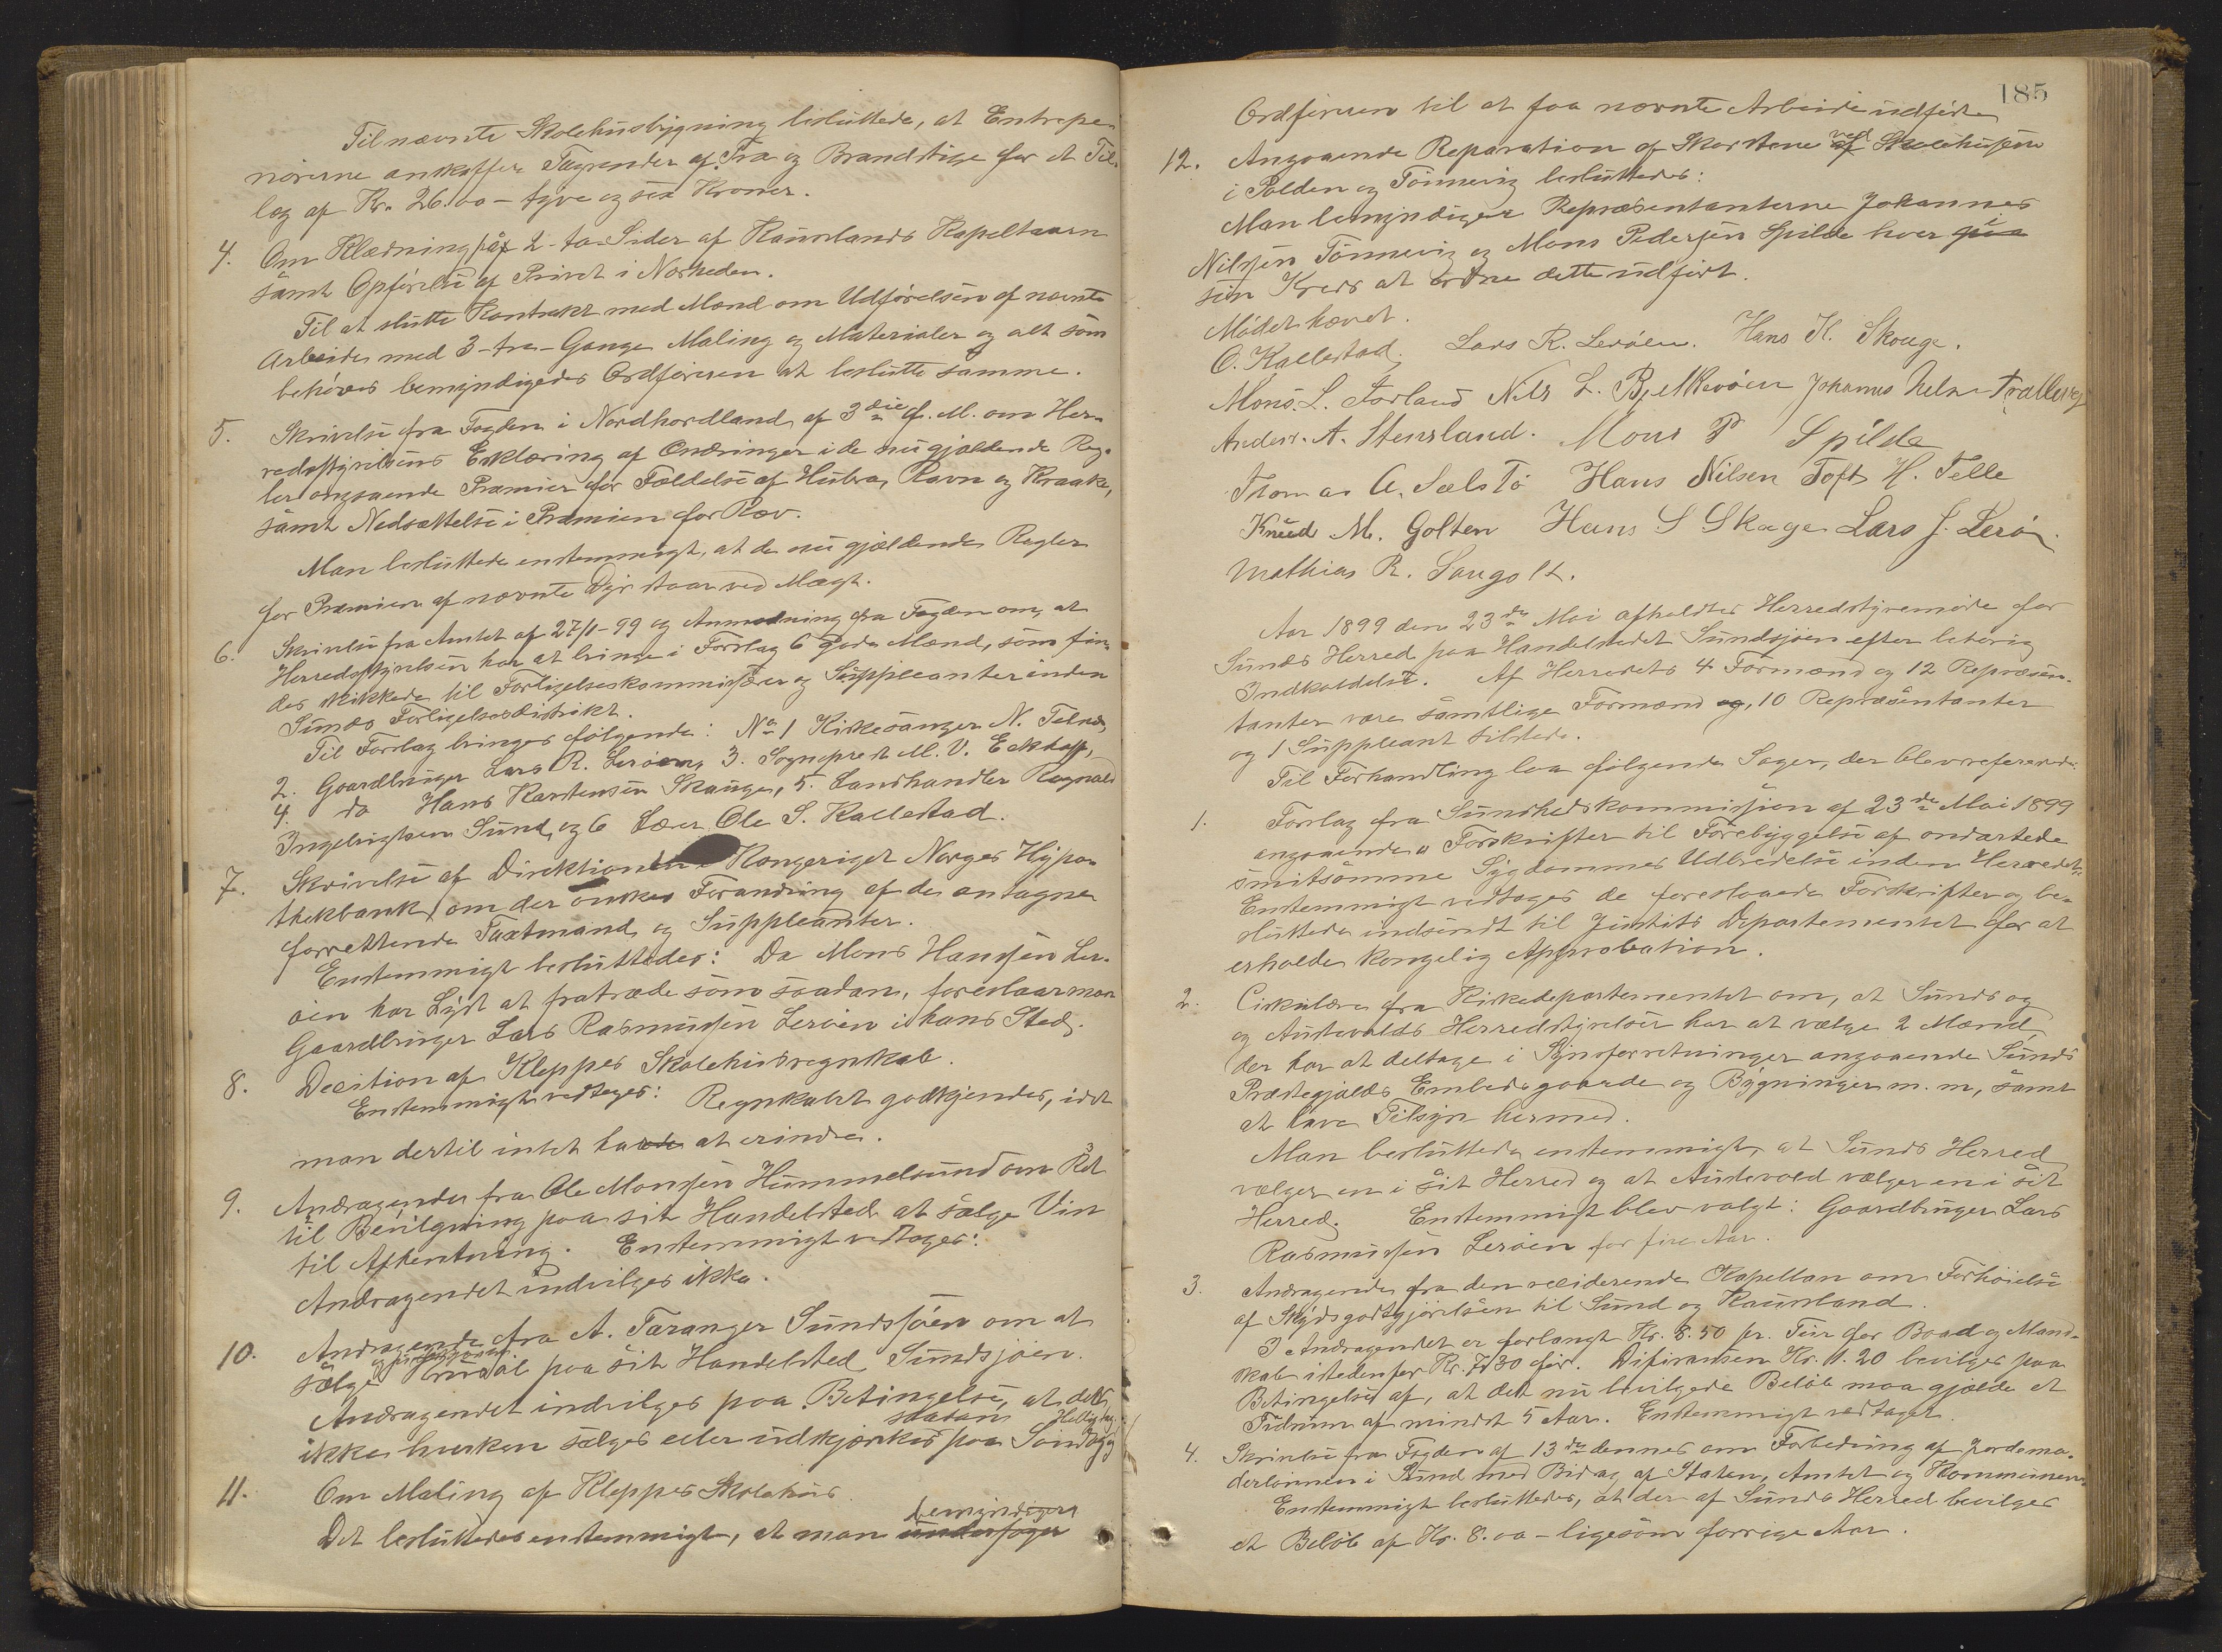 Til nævnte Skolehusbygning besluttede, at Entrepe-
nörerne anskaffer Tagrender af Træ og Brandstige for et Til-
læg af Kr. 26.00 - tyve og sex Kroner.
4. Om Klædning på 2 - to - Sider af Kauslands Kapeltaarn
samt Opförelse af Privet i Nærheden.
Til at slutte Kontrakt med Mand om Udförelsen af nævnte
Arbeide med 3 - tre - Gange Maling og Materialer og alt som
behöves bemyndigedes Ordföreren at beslutte samme.
5. Skrivelse fra Fogden i Nordhordland af 3die ds. M. om Her-
redsstyrelsens Erklæring af Ændringer i de nu gjældende Reg-
ler angaaende Præmier for Fældelse af Hubro, Ravn og Kraake,
samt Nedsættelse i Præmien for Ræv.
Man besluttede enstemmigt, at de nu gjældende Regler
for Præmien af nævnte Dyr staar ved Magt.
6. Skrivelse fra Amtet af 27/1-99 og Anmodning fra Fogden om, at
Herredsstyrelsen har at bringe i Forslag 6 gode Mænd, som fin-
des skikkede til Forligelseskommissærer og Suppleanter inden
Sunds Forligelsesdistrikt.
Til Forslag bringes fölgende: No 1 Kirkesanger N. Telnes,
2. Gaardbruger Lars R. Leröen, 3. Sogneprest M. V. Eckhoff,
4. do Hans Karstensen Skauge, 5. Landhandler Ragnald
Ingebrigtsen Sund, og 6 Lærer Ole S. Kallestad.
7. Skrivelse af Direktionen Kongeriget Norges Hypo-
thekbank, om der önskes Forandring af de antagne
forrettende Taxtmænd og Suppleanter.
Enstemmigt besluttedes: Da Mons Hanssen Ler-
öen har Lyst at fratræde som saadan, foreslaar man
Gaardbruger Lars Rasmussen Leröen i hans Sted.
8. Decition af Kleppes Skolehusregnskab.
Enstemmigt vedtages: Regnskabet godkjendes, idet
man dertil intet havde at erindre.
9. Andragende fra Ole Monssen Hummelsund om Ret
til Bevilgning paa sit Handelsted at sælge Vin
til Afhentning. Enstemmigt vedtages:
Andragendet indvilges ikke.
10. Andragende fra A. Taranger Sundssjöen om at
sælge Krusöl paa sit Handelsted Sundsjöen.
Andragendet indvilges paa Betingelse, at det
saadan Helligdag
ikke hverken sælges eller udskjænkes paa Söndag og
11. Om Maling af Kleppes Skolehus
bemyndiger
Det besluttedes enstemmigt, at man undersöger
185
Ordföreren til at faa nævnte Arbeide udfört.
12. Angaaende Reparation af Skorstene af ved Skolehusene
i Polden og Tönnevig besluttedes:
Man bemyndiger Repræsentanterne Johannes
Nilssen Tönnevig og Mons Pedersen Spilde hver
sin Kreds at ordne dette udfört.
Mödet hævet.
O. Kallestad. Lars R. Leröen. Hans K. Skouge.
Mons. L. Forland Nils L. Bjelkeröen Johannes Nelsen
Anders. A. Stensland. Mons P Spilde
Tomas A. Sælstö Hans Nilsen Toft H. Telle
Knud M. Golten Hans S Skage Lars J. Lerö.
Mathias R. Sangolt.
Aar 1899 den 23de Mai afholdtes Herredstyremöde for
Sunds Herred paa Handelstedet Sundsjöen efter lovlig
Indkaldelse. Af Herredets 4 Formænd og 12 Repræsen-
tanter vare samtlige Formænd og, 10 Repræsentanter
og 1 Suppleant tilstede.
Til Forhandling laa fölgende Sager, der blev refererede:
1. Forslag fra Sundhedskommissionen af 23de Mai 1899
angaaende "Forskrifter til Forebyggelse af ondartede
smitsomme Sygdommes Udbredelse inden Herredet."
Enstemmigt vedtoges de foreslaaede Forskrifter og be-
sluttede indsendt til Justits Departementet for at
erholde kongelig Approbation.
2. Cirkulære fra Kirkedepartementet om, at Sunds og
og Austevolds Herredstyrelser har at vælge 2 Mænd,
der har at deltage i Synsforretninger angaaende Sunds
Præstegjælds Embedsgaarde og Bygninger m. m, samt
at have Tilsyn hermed.
Man besluttede enstemmigt, at Sunds Herred
vælger en i sit Herred og at Austevold vælger en i sit
Herred. Enstemmigt blev valgt: Gaardbruger Lars
Rasmussen Leröen for fire Aar.
3. Andragende fra den residerende Kapellan om Forhöielse
af Skydsgodtgjörelsen til Sund og Kausland.
I Andragendet er forlangt Kr. 8.50 pr. Tur for Baad og Mand-
skab istedenfor Kr. 7.30 för. Diferansen Kr. 1.20 bevilges paa
Betingelse af, at det nu bevilgede Belöb maa gjælde et
Tidrum af mindst 5 Aar. Enstemmigt vedtaget.
4. Skrivelse fra Fogden af 13de dennes om Forbedring af Jordemo-
derlönnen i Sund med Bidrag af Staten, Amtet og Kommunen.
Enstemmigt besluttedes, at der af Sunds Herred bevilges
et Belöb af Kr. 8.00 - ligesom forrige Aar.